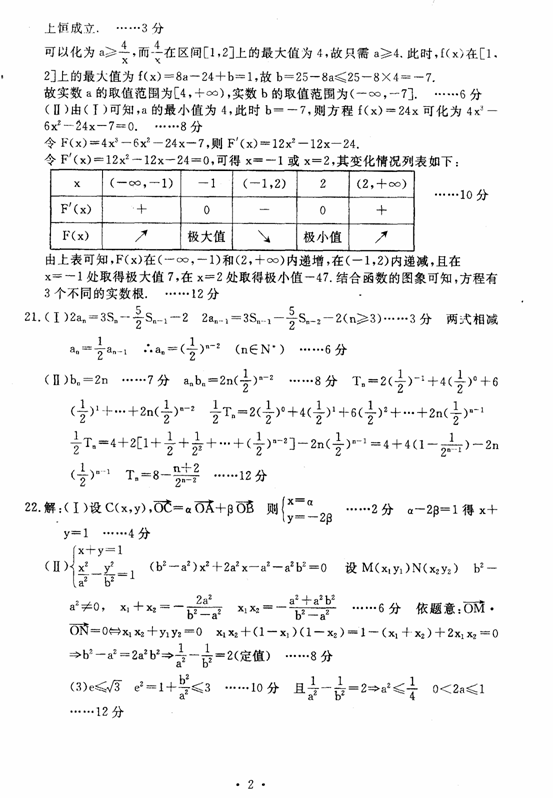 上恒成立. ……3分
可以化为a≥4/x,而4/x在区间[1,2]上的最大值为4,故只需a≥4.此时,f(x)在[1,
2]上的最大值为f(x)=8a-24+b=1,故b=25-8a≤25-8×4=-7.
故实数a的取值范围为[4,+∞),实数b的取值范围为(-∞,-7]. ……6分
(Ⅱ)由(Ⅰ)可知,a的最小值为4,此时b=-7,则方程f(x)=24x可化为4x³-
6x²-24x-7=0. ……8分
令F(x)=4x³-6x²-24x-7,则F′(x)=12x²-12x-24.
令F′(x)=12x²-12x-24=0,可得x=-1或x=2,其变化情况列表如下:
x (-∞,-1) -1 (-1,2) 2 (2,+∞)
……10分
F′(x) + 0 - 0 +
F(x) ↗ 极大值 ↘ 极小值 ↗
由上表可知,F(x)在(-∞,-1)和(2,+∞)内递增,在(-1,2)内递减,且在
x=-1处取得极大值7,在x=2处取得极小值-47.结合函数的图象可知,方程有
3个不同的实数根. ……12分
21.(Ⅰ)2aₙ=3Sₙ-5/2Sₙ₋₁-2 2aₙ₋₁=3Sₙ₋₁-5/2Sₙ₋₂-2(n≥3)……3分 两式相减
aₙ=1/2aₙ₋₁ ∴aₙ=(1/2)ⁿ⁻² (n∈N*) ……6分
(Ⅱ)bₙ=2n ……7分 aₙbₙ=2n(1/2)ⁿ⁻² ……8分 Tₙ=2(1/2)⁻¹+4(1/2)⁰+6
(1/2)¹+…+2n(1/2)ⁿ⁻² 1/2Tₙ=2(1/2)⁰+4(1/2)¹+6(1/2)²+…+2n(1/2)ⁿ⁻¹
1/2Tₙ=4+2[1+1/2+1/2²+…+(1/2)ⁿ⁻²]-2n(1/2)ⁿ⁻¹=4+4(1-1/2ⁿ⁻¹)-2n
(1/2)ⁿ⁻¹ Tₙ=8-(n+2)/2ⁿ⁻² ……12分
22.解:(Ⅰ)设C(x,y),OC→=αOA→+βOB→ 则{x=α y=-2β ……2分 α-2β=1得x+
y=1 ……4分
(Ⅱ){x+y=1 x²/a²-y²/b²=1 (b²-a²)x²+2a²x-a²-a²b²=0 设M(x₁y₁)N(x₂y₂) b²-
a²≠0, x₁+x₂=-2a²/(b²-a²) x₁x₂=-(a²+a²b²)/(b²-a²) ……6分 依题意:OM→·
ON→=0⇔x₁x₂+y₁y₂=0 x₁x₂+(1-x₁)(1-x₂)=1-(x₁+x₂)+2x₁x₂=0
⇒b²-a²=2a²b²⇒1/a²-1/b²=2(定值) ……8分
(3)e≤√3 e²=1+b²/a²≤3 ……10分 且1/a²-1/b²=2⇒a²≤1/4 0<2a≤1
……12分
·2·